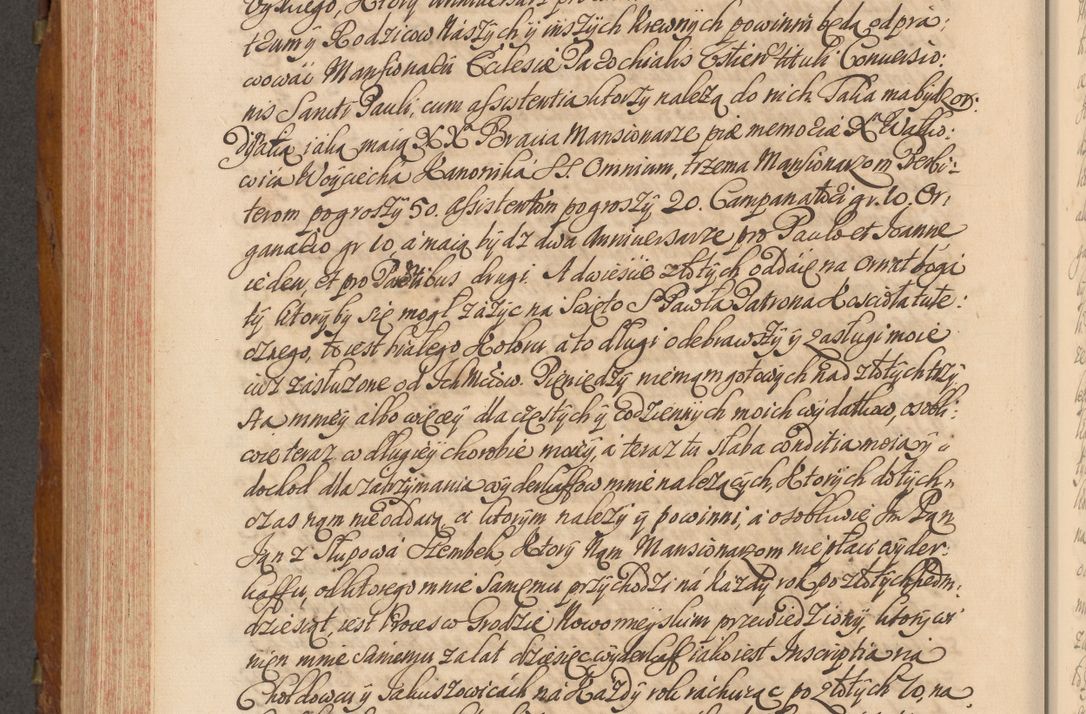 tzumy Rodzicow Naszych y inszych krewnych powinni będą odpra:
wować Mansionarii Ecclesiæ Parochialis Tituli Conversio:
nis Sancti Pauli, cum assistentia ktorzy należą do nich. Talia ma być or:
dynatia iaką maią XX Bracia Mansionarze piæ memoriæ Xa Walko:
wica Woyciecha Kanonika SS. Omnium, trzema Mansionarzom Perbi:
terom pogroszy 50. Assistentom pogroszy 20. Campanatori gr. 10. Or:
ganario gr 10 a maią bydz dwa Anniversarze pro Paulo et Joanne
ieden, et pro Parentibus drugi. A dwiescie złotych oddaię na Ornat bogi
ty ktoryby się mogł zażyc na Swięto S Pawła Patrona Koscioła tute:
cznego, to iest białego Koloru, a to długi odebrawszy y zasługi moie
iuż zasłużone od Ich Mciow. Pieniędzy niemam gotowych nad złotych trzy
sta mniey albo więcey dla częstych y codziennych moich wydatkow, osobli:
wie teraz w długiey chorobie moiey, a teraz tu słaba conditia moia y
dochod dla zatrzymania wyderkaffow mnie należących, Ktorych dotych
czas nam nieoddaią, ci ktorym należy y powinni, a osobliwie Jm Pan
Jan z Słupowa Szembek, Ktory Nam Mansionarzom nie płaci wyder:
kaffu, od ktorego mnie samemu przychodzi na każdy rok po złotych siedm:
dziesiąt, iest Proces w Grodzie Nowomieyskim przewiedziony, ktory wi
nien mnie samemu za lat dziesięc wyderkaff iako iest Inscriptia na
Chołdowcu y Jakuszowicach na Każdy rok rachuiąc po złotych 70, na